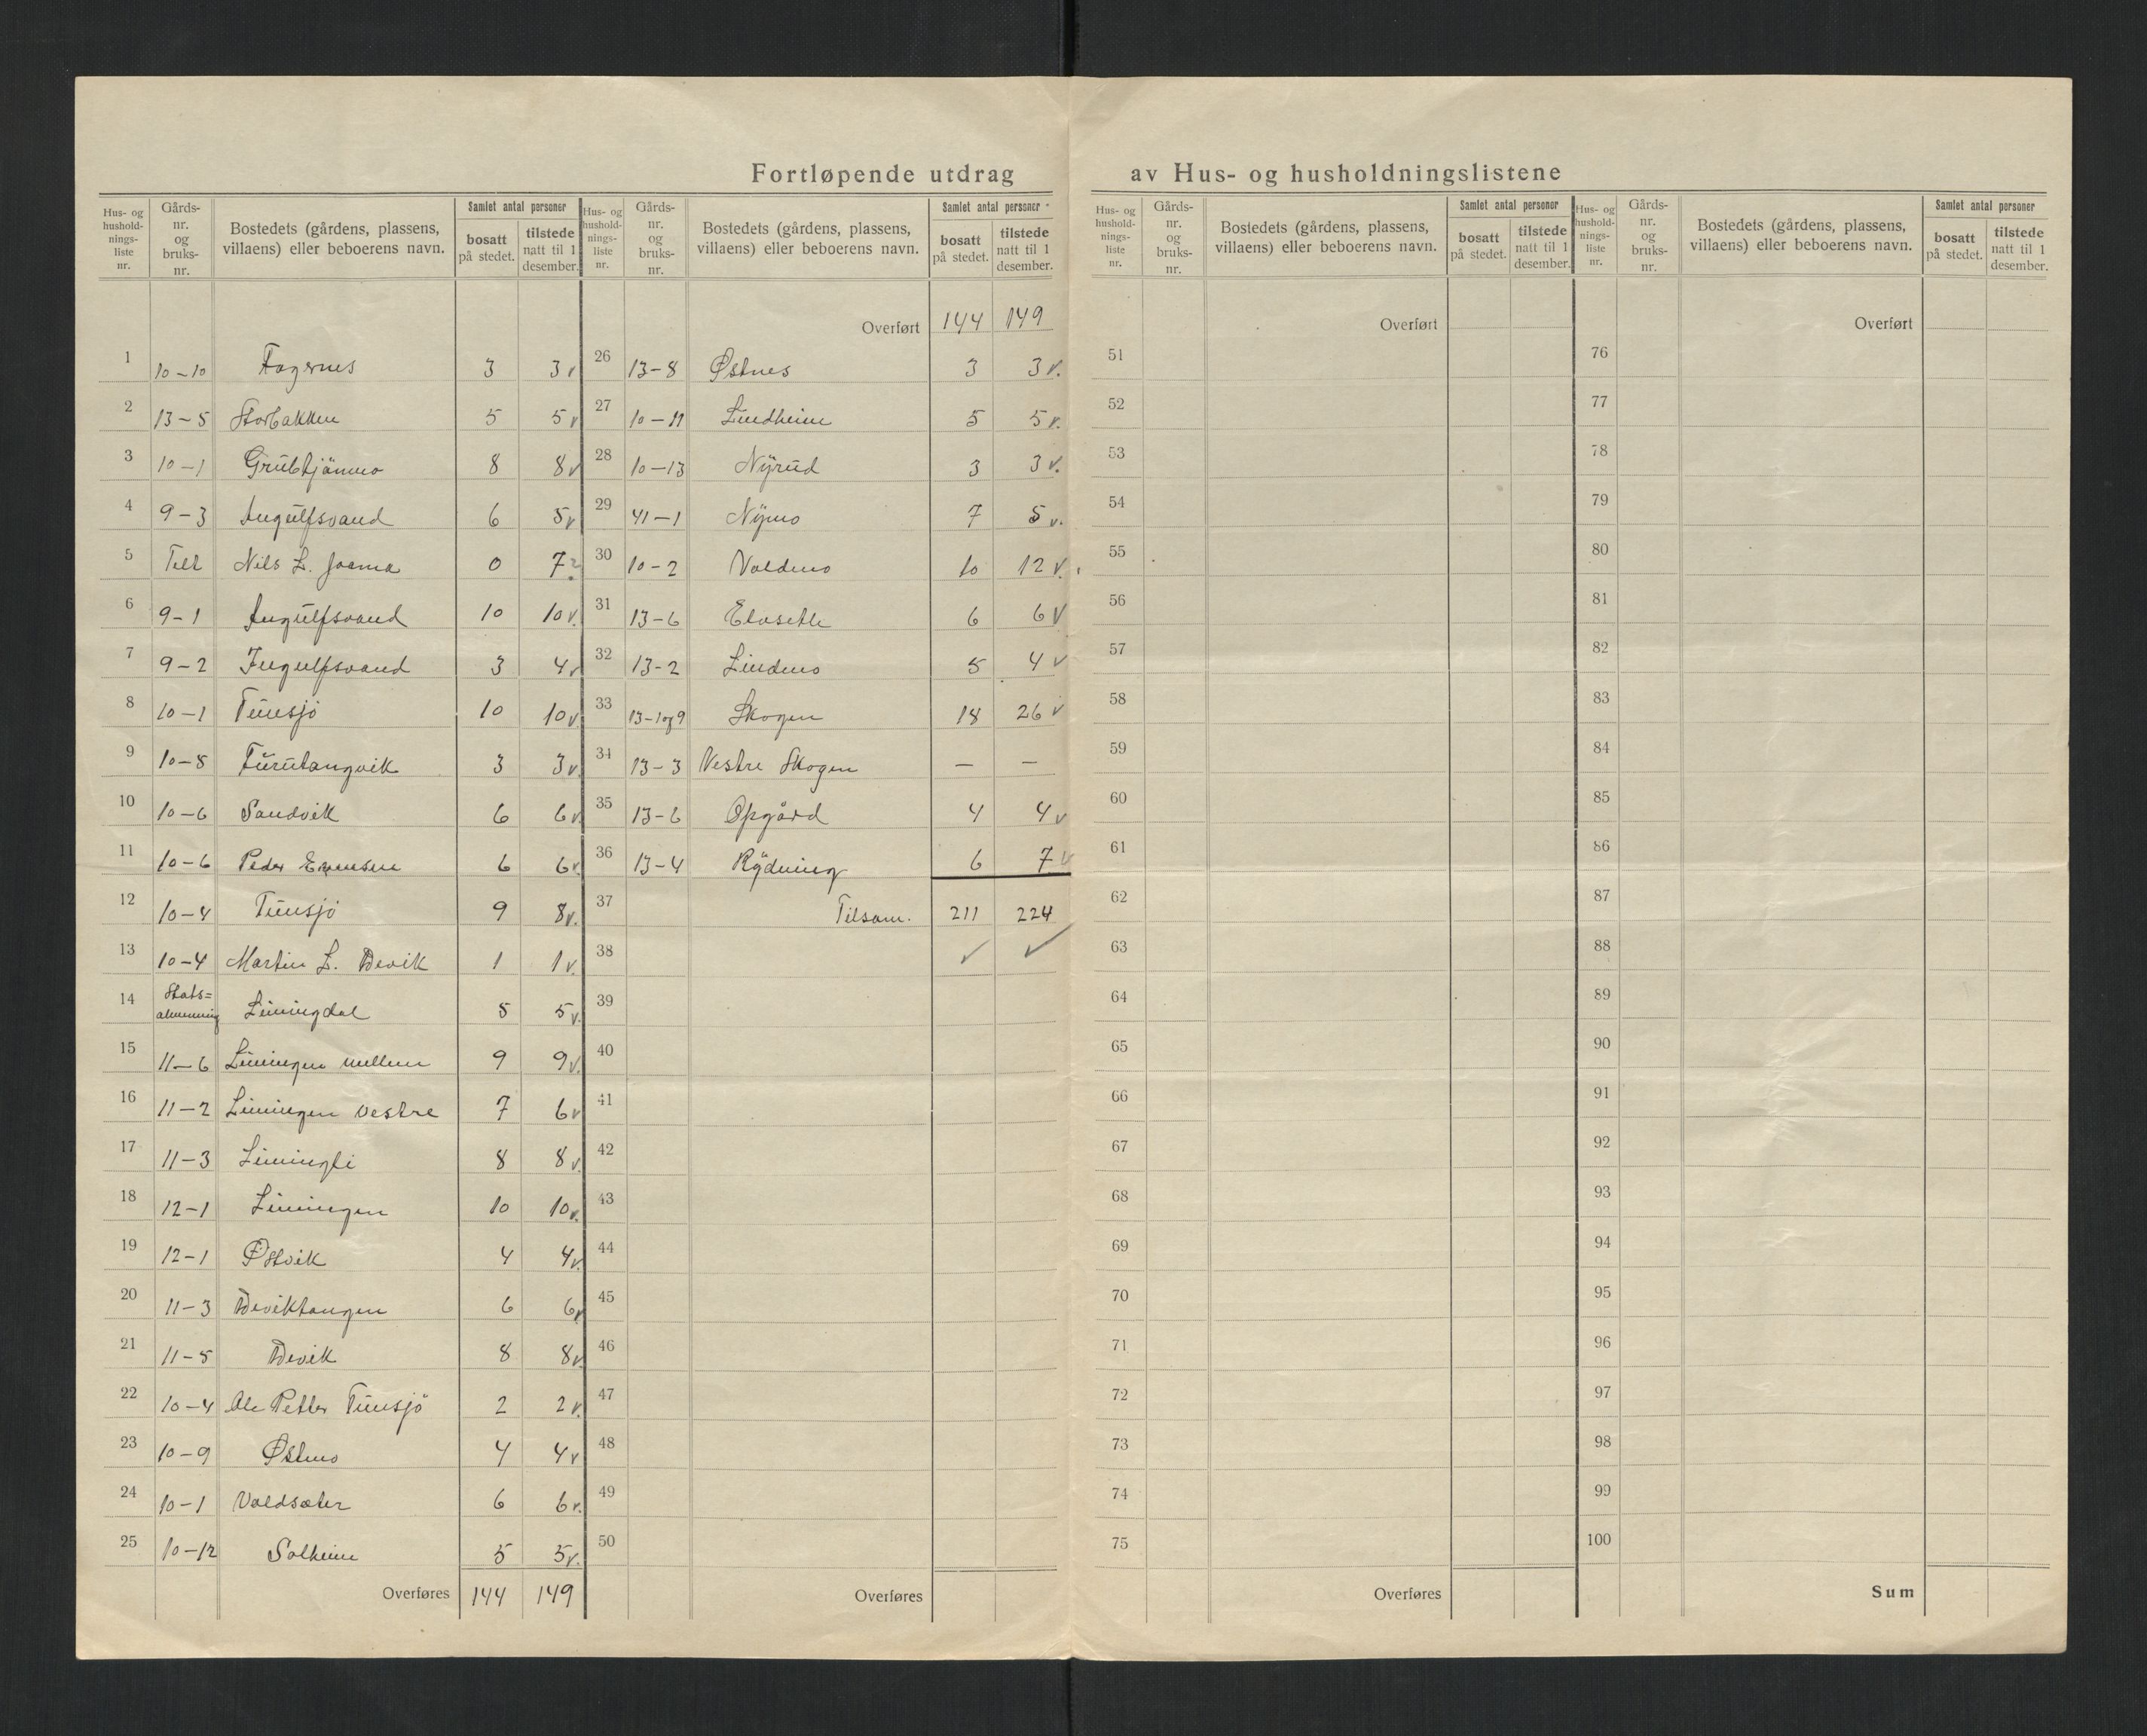 Fortløpende utdrag av Hus- og husholdningslistene
Hus- og hushold-nings-liste nr. Gårds-nr. og bruks-nr. Bostedets (gårdens, plassens, villaens) eller beboerens navn. Samlet antal personer bosatt på stedet. tilstede natt til 1 desember.
1 10-10 Fagernes 3 3 v
2 13-5 Storbakken 5 5 v
3 10-1 Grubtjänmo 8 8 v
4 9-3 Ingulfsvand 6 5 v
5 Telt Nils L. Joama 0 7 ?
6 9-1 Ingulfsvand 10 10 v.
7 9-2 Ingulfsvand 3 4 v
8 10-1 Tunsjö 10 10 v.
9 10-8 Furutangvik 3 3 v.
10 10-6 Sandvik 6 6 v.
11 10-6 Peder 6 6 v.
12 10-4 Tunsjö 9 8 v.
13 10-4 Martin L. Devik 1 1 v.
14 Stats=almenning Limingdal 5 5 v.
15 11-6 Limingen mellem 9 9 v.
16 11-2 Limingen vestre 7 6 v
17 11-3 Limingli 8 8 v.
18 12-1 Limingen 10 10 v.
19 12-1 Østvik 4 4 v.
20 11-3 Deviktangen 6 6 v
21 11-5 Devik 8 8 v
22 10-4 Ole Petter Tunsjö 2 2 v.
23 10-9 Østmo 4 4 v
24 10-1 Voldsæter 6 6 v.
25 10-12 Solheim 5 5 v.
Overføres 144 149
Hus- og hushold-nings-liste nr. Gårds-nr. og bruks-nr. Bostedets (gårdens, plassens, villaens) eller beboerens navn. Samlet antal personer bosatt på stedet. tilstede natt til 1 desember.
Overført 144 149
26 13-8 Østnes 3 3 v.
27 10-11 Lindheim 5 5 v.
28 10-13 Nyrud 3 3 v.
29 41-1 Nymo 7 5 v.
30 10-2 Voldmo 10 12 v.
31 13-6 Elvseth 6 6 v
32 13-2 Lindmo 5 4 v
33 13-1og9 Skogen 18 26 v
34 13-3 Vestre Skogen — —
35 13-6 Opgård 4 4 v
36 13-4 Rydning 6 7 v
37 Tilsam. 211 224
38 ✓ ✓
39
40
41
42
43
44
45
46
47
48
49
50
Overføres
Hus- og hushold-nings-liste nr. Gårds-nr. og bruks-nr. Bostedets (gårdens, plassens, villaens) eller beboerens navn. Samlet antal personer bosatt på stedet. tilstede natt til 1 desember.
Overført
51
52
53
54
55
56
57
58
59
60
61
62
63
64
65
66
67
68
69
70
71
72
73
74
75
Overføres
Hus- og hushold-nings-liste nr. Gårds-nr. og bruks-nr. Bostedets (gårdens, plassens, villaens) eller beboerens navn. Samlet antal personer bosatt på stedet. tilstede natt til 1 desember.
Overført
76
77
78
79
80
81
82
83
84
85
86
87
88
89
90
91
92
93
94
95
96
97
98
99
100
Sum